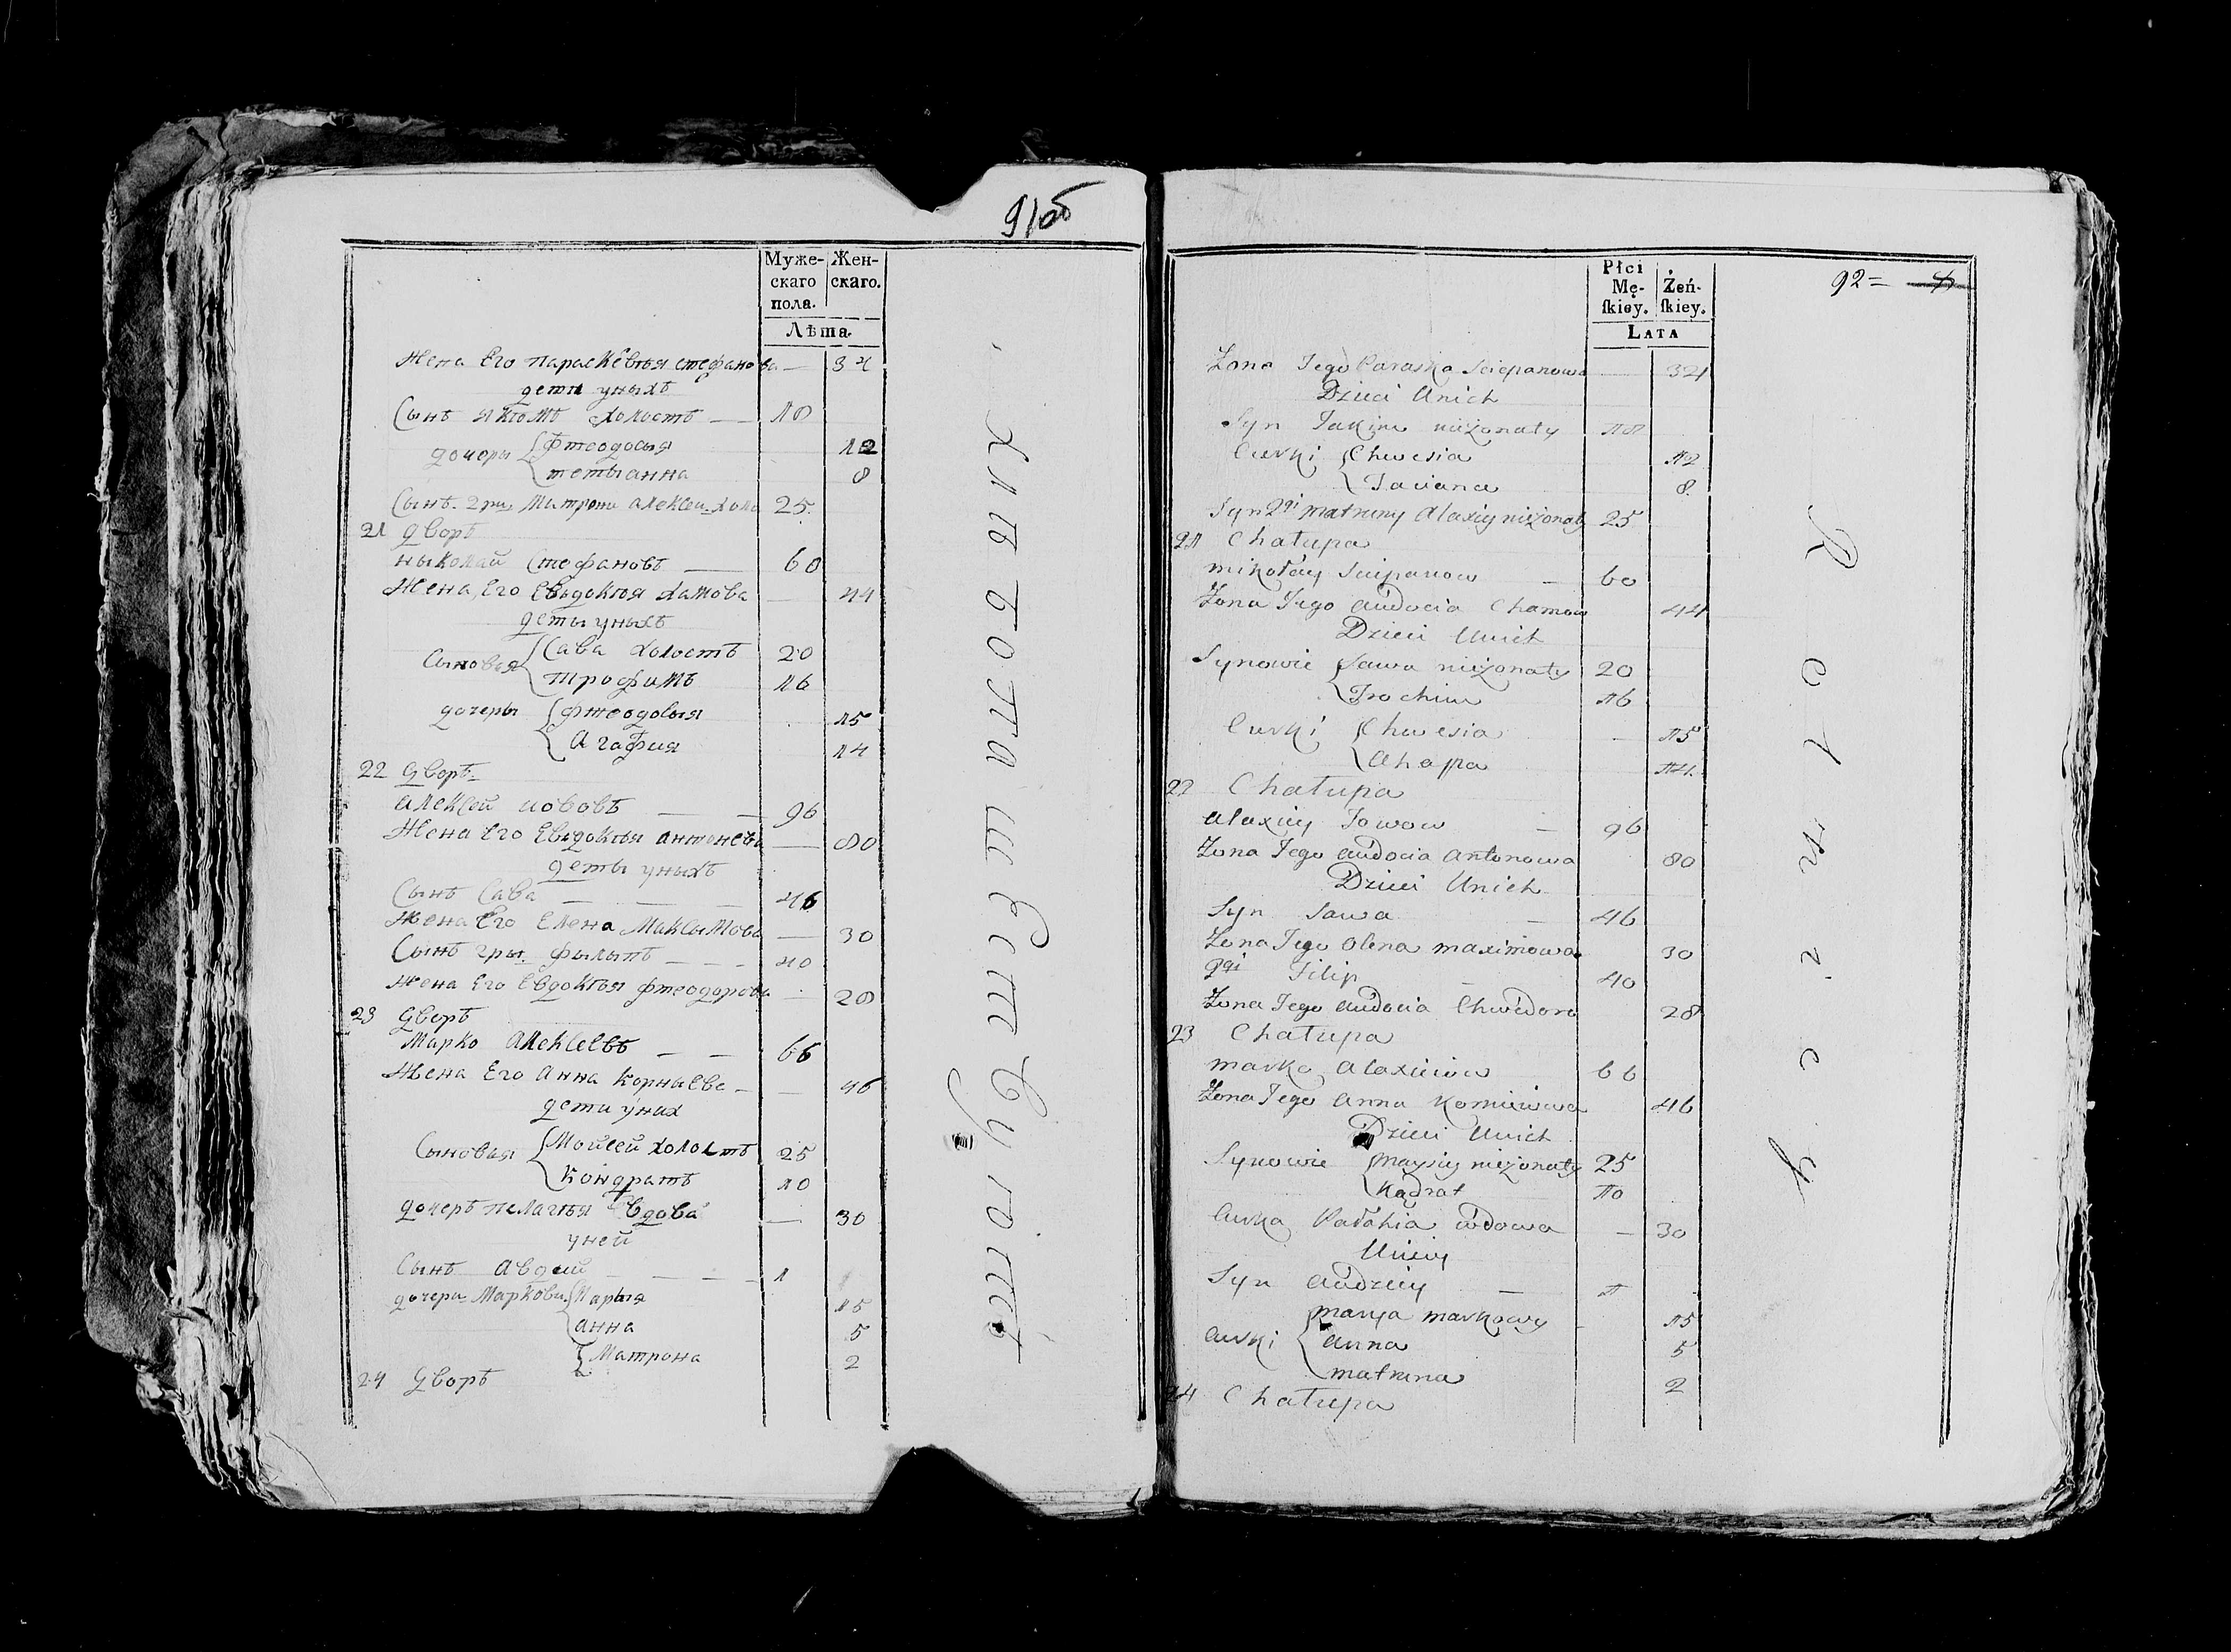 91об
Муже-
скаго
пола.
Жен-
скаго.
Лѣта.
Жена Его параскевтья стефанова — 34
дети уныхъ
Сынъ якимъ холостъ — 18
дочери { Фтеодосыя 12
тетыанна 8
Сынъ 2ри Матрони Алексеи холо 25
21 дворъ
ныколай Стефановъ — 60
Жена Его Евдоктоя хамова — 44
деты уныхъ
Сыновья { Сава холостъ 20
трофимъ 16
дочеры { фтеодосыя 15
Агафия 14
22 дворъ
алексей иововъ — 96
Жена Его Евдоктья антонева — 80
деты уныхъ
Сынъ Сава — 46
Жена Его Елена Максымова — 30
Сынъ 2ры филыпъ — 40
жена Его Евдоктья фтеодорова — 28
23 дворъ
Марко Алексеевъ — 66
Жена Его Анна Корнаева — 46
дети уних
Сыновья { Мойсей холостъ 25
Кондратъ 10
дочеръ пелагтья вдова — 30
уней
Сынъ Авдеий — 1
дочери Маркови { Марыя 15
анна 5
Матрона 2
24 дворъ
92=
Płci
Mę-
ſkiey.
Żeń-
ſkiey.
LATA
Żona Jego Paraska Sciepanowa 34
Dzieci Unich
Syn Jakim nieżonaty 18
Curki { Chwesia 12
Taciana 8.
Syn 2gi matruny Alaxiey nieżonaty 25
21 Chałupa
mikołay Sciepanow — 60
Żona Jego audocia Chamow 44
Dzieci Unich
Synowie { Sawa nieżonaty 20
Trochim 16
Curki { Chwesia 15
Ahapa 14.
22 Chałupa
alaxiey Jowow — 96
Żona Jego audocia antonowa 80
Dzieci Unich
Syn Sawa — 46
Żona Jego Olena maximowa 30
2gi Filip — 40
Żona Jego audocia Chwedoro 28
23 Chałupa
marko Alaxieiow 66
Żona Jego anna Korniewa 46
Dzieci Unich
Synowie { maysiey nieżonaty 25
Kądrat 10
Curka Pałahia wdowa — 30
Unieiy
Syn audziey — 1
Curki { marya markowy 15
anna 5
matruna 2
24 Chałupa
R o l n i c y